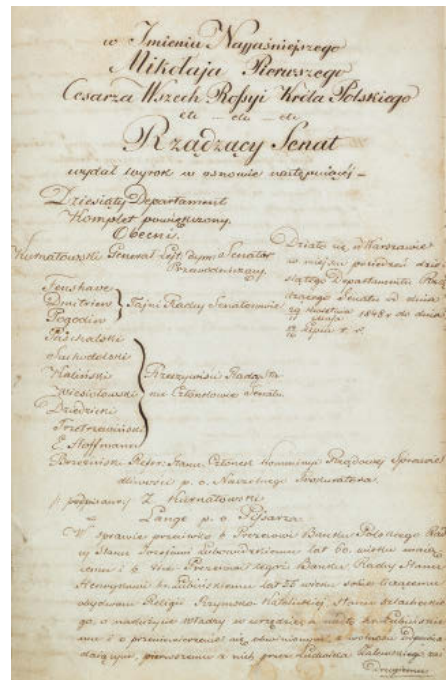 w Imieniu Najjaśniejszego
Mikołaja Pierwszego
Cesarza Wszech Rossyi Króla Polskiego
etc — etc — etc
Rządzący Senat
wydał wyrok w osnowie następującej —
Dziesiąty Departament
Komplet powiększony.
Obecni.
Kurnatowski Generał Lejt. dym: Senator
Przewodniczący.
Działo się w Warszawie
w miejscu posiedzeń dzie-
siątego Departamentu Rzą-
dzącego Senatu w dniach
1848 r. do dnia
Lipca t. r.
Fenshave
Dmitriew
Pogodin
Tajni Radcy Senatorowie
Paschalski
Suchodolski
Kaliński
Wiesiołowski
Dziedzicki
Trzetrzewiński
E. Hoffmann
Rzeczywiści Radcy Sta-
nu Członkowie Senatu.
Brzeziński Refer: Stanu Członek Kommissyi Rządowej Sprawie-
dliwości p. o. Naczelnego Prokuratora.
podpisano) Z. Kurnatowski
Lange p. o. Pisarza.
W sprawie przeciwko b. Prezesowi Banku Polskiego Rad-
cy Stanu Józefowi Lubowidzkiemu lat 60 wieku mające-
mu i b. Vice-Prezesowi tegoż Banku Radcy Stanu
Henrykowi hr. Łubieńskiemu lat 55 wieku sobie liczącemu
obydwom Religii Rzymsko Katolickiej, Stanu szlachec-
go, o nadużycie władzy w urzędzie, a nadto hr. Łubieńskie-
mu i o przeniewierzenie się obwinionym, z wolności odpowia-
dającym, pierwszemu z nich przez Ludwika
Drugiemu